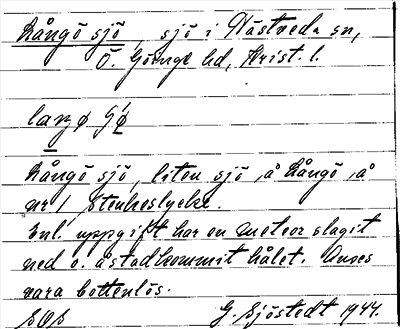 Långö sjö, sjö i Hästveda sn,
Ö. Göinge hd, Krist. l.
laŋø ʃø
Långö sjö, liten sjö å Långö, å
nr 1 Stenkeslycke.
Enl. uppgift har en meteor slagit
ned o. åstadkommit hålet. Anses
vara bottenlös.
G. Sjöstedt 1944.